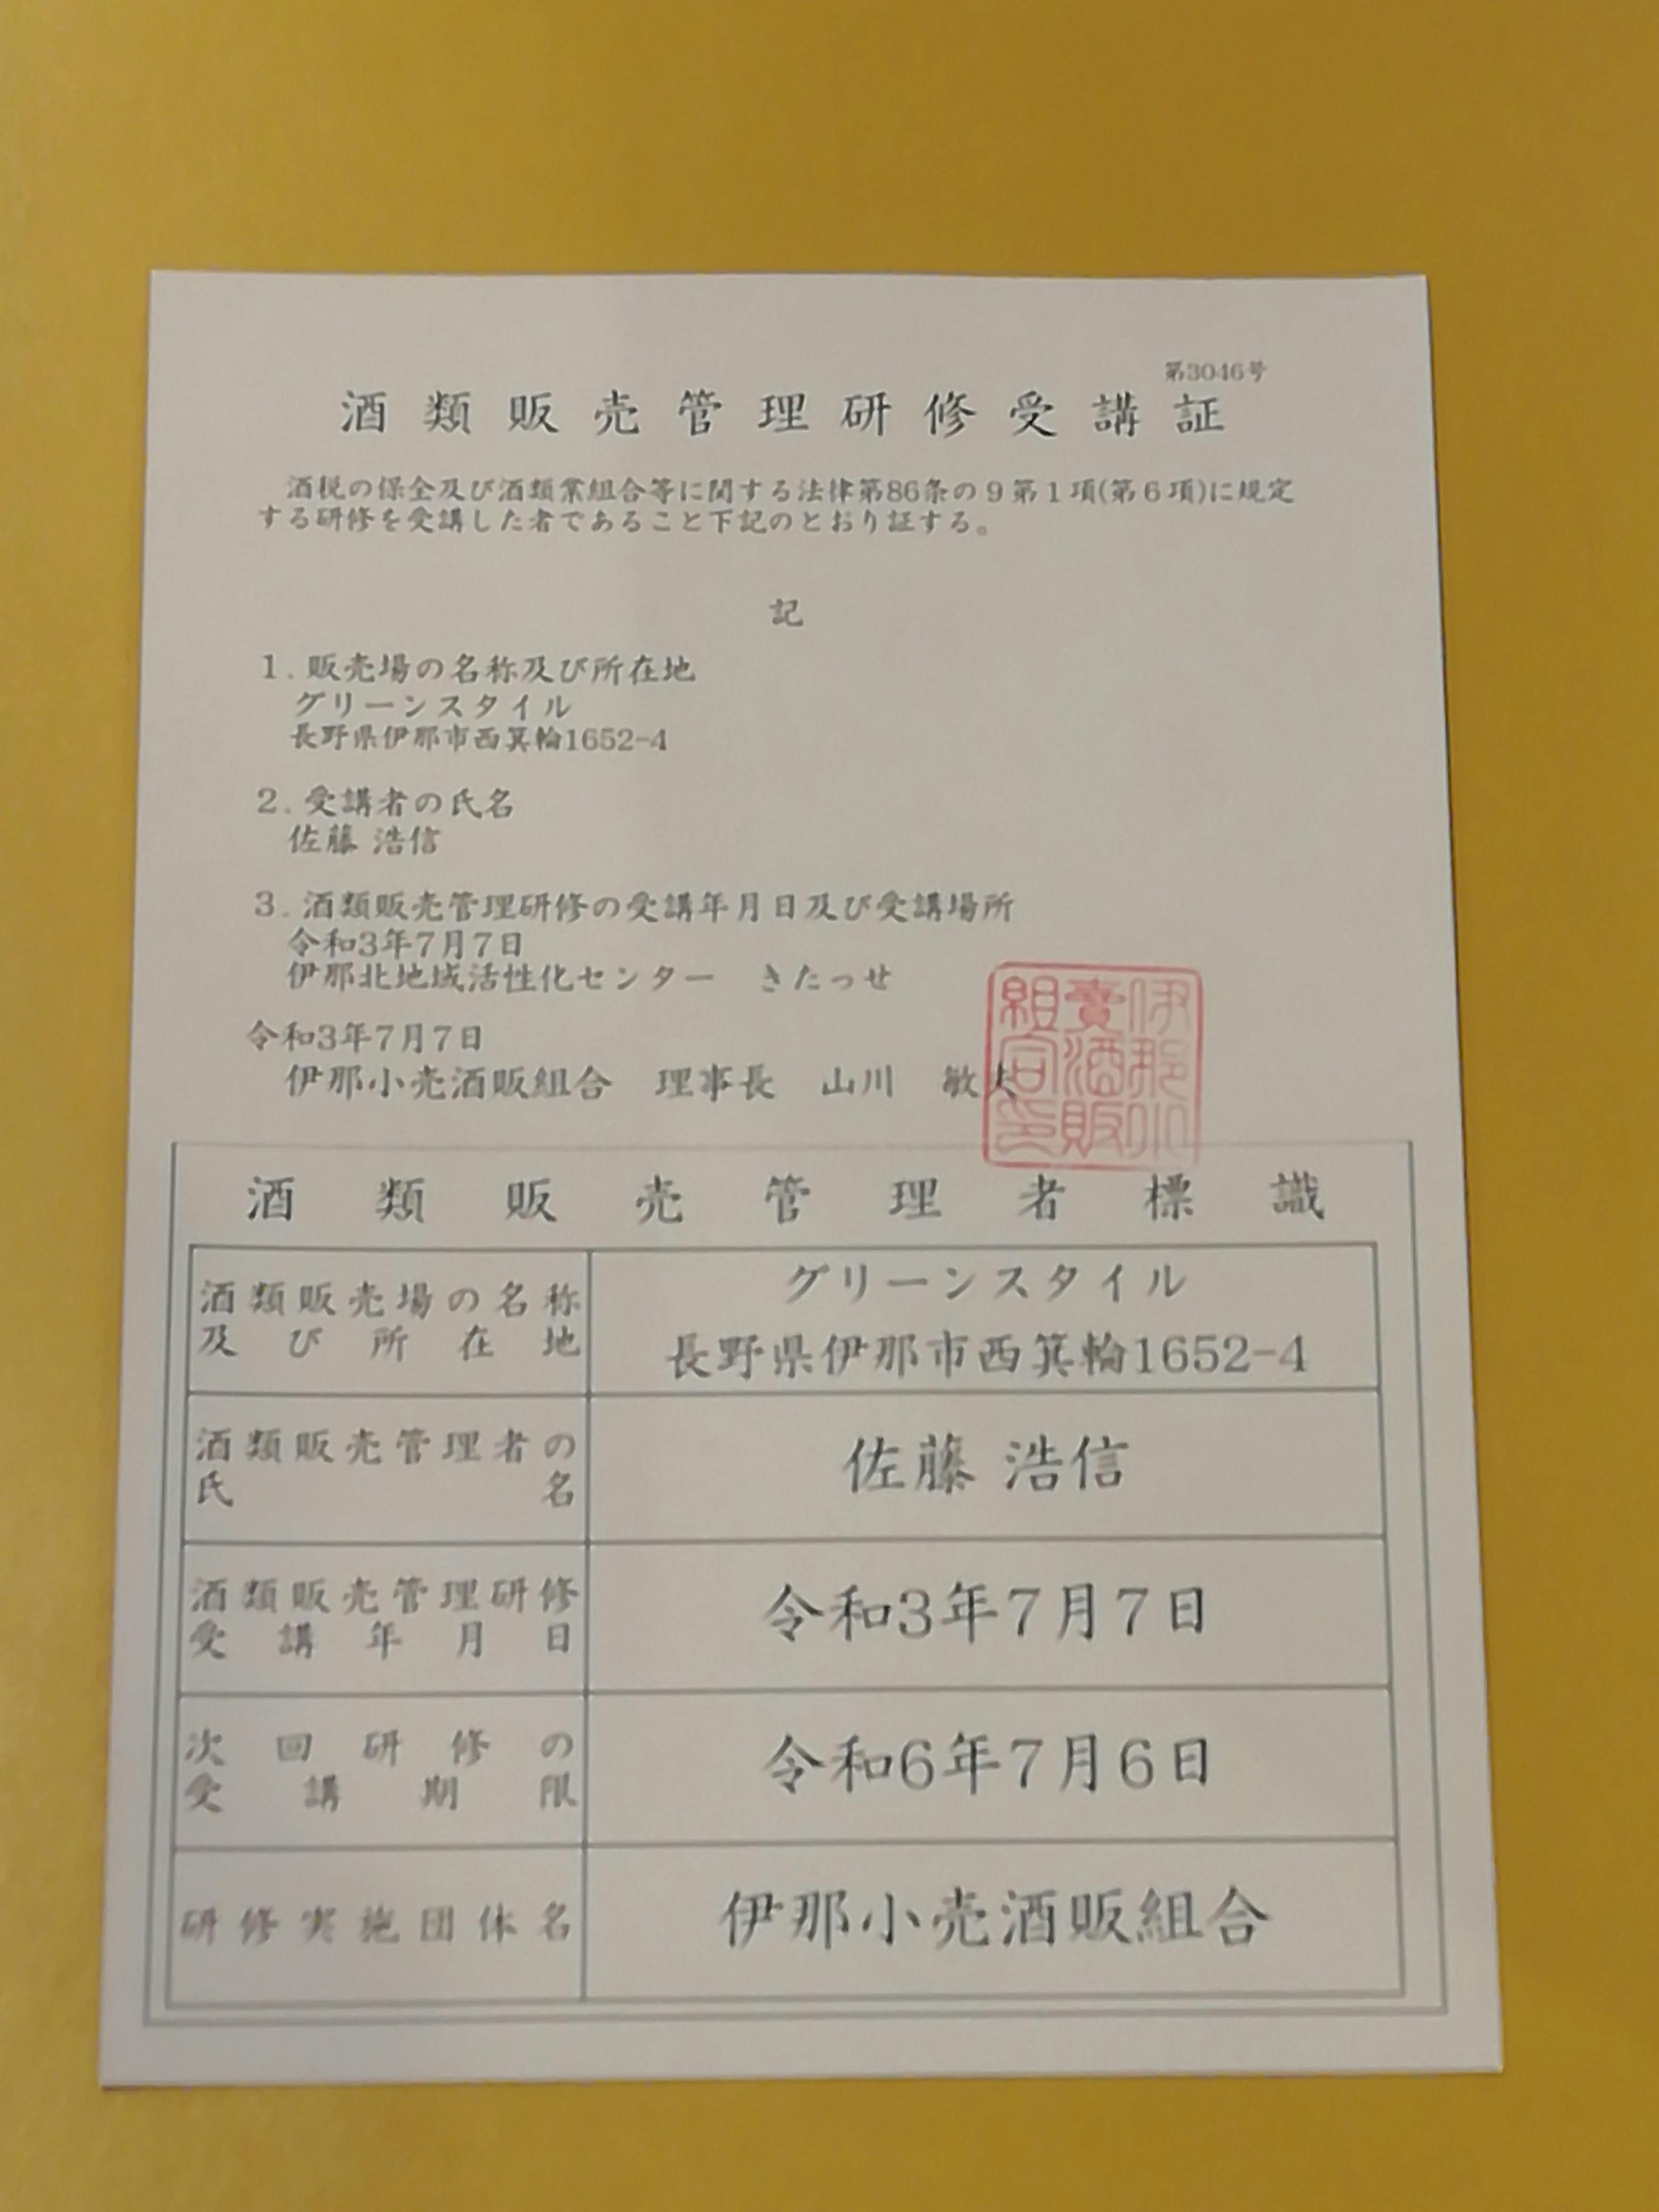 第3046号
酒類販売管理研修受講証
酒税の保全及び酒類業組合等に関する法律第86条の9第1項(第6項)に規定
する研修を受講した者であること下記のとおり証する。
記
1.販売場の名称及び所在地
グリーンスタイル
長野県伊那市西箕輪1652-4
2.受講者の氏名
佐藤 浩信
3.酒類販売管理研修の受講年月日及び受講場所
令和3年7月7日
伊那北地域活性化センター きたっせ
令和3年7月7日
伊那小売酒販組合 理事長 山川 敏夫
伊那小
賣酒販
組合印
酒類販売管理者標識
酒類販売場の名称
及び所在地
グリーンスタイル
長野県伊那市西箕輪1652-4
酒類販売管理者の
氏名
佐藤 浩信
酒類販売管理研修
受講年月日
令和3年7月7日
次回研修の
受講期限
令和6年7月6日
研修実施団体名
伊那小売酒販組合